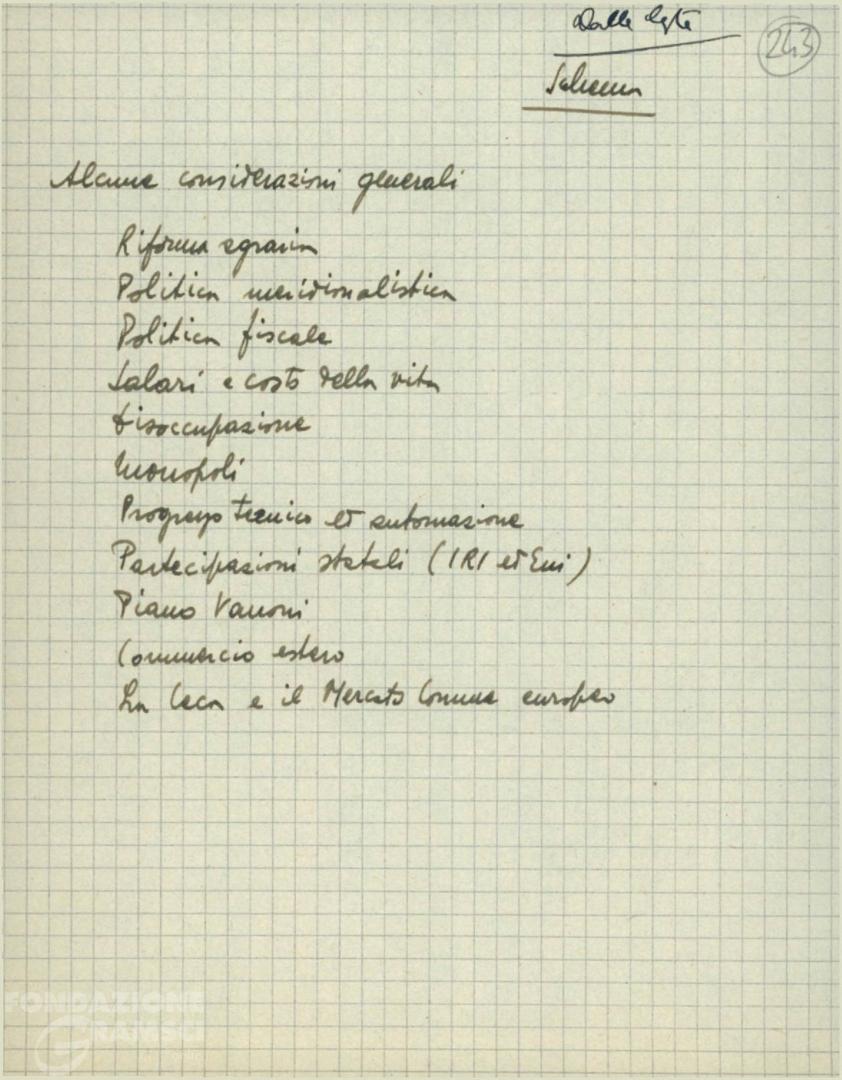 Dalle
243
Schema
Alcune considerazioni generali
Riforma agraria
Politica meridionalistica
Politica fiscale
Salari e costo della vita
Disoccupazione
Monopoli
Progresso tecnico ed automazione
Partecipazioni statali (IRI ed Eni)
Piano Vanoni
Commercio estero
La Ceca e il Mercato Comune europeo
FONDAZIONE
GRAMSCI